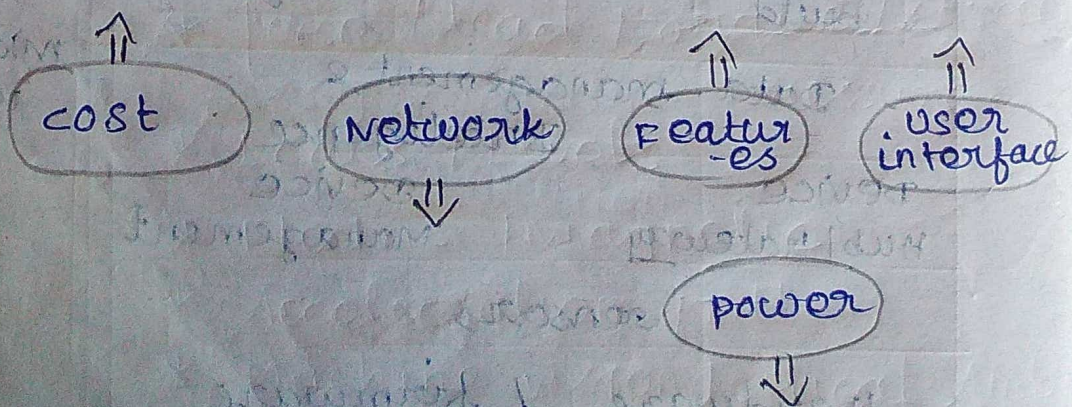 cost
Network
Featur
-es
user
interface
power